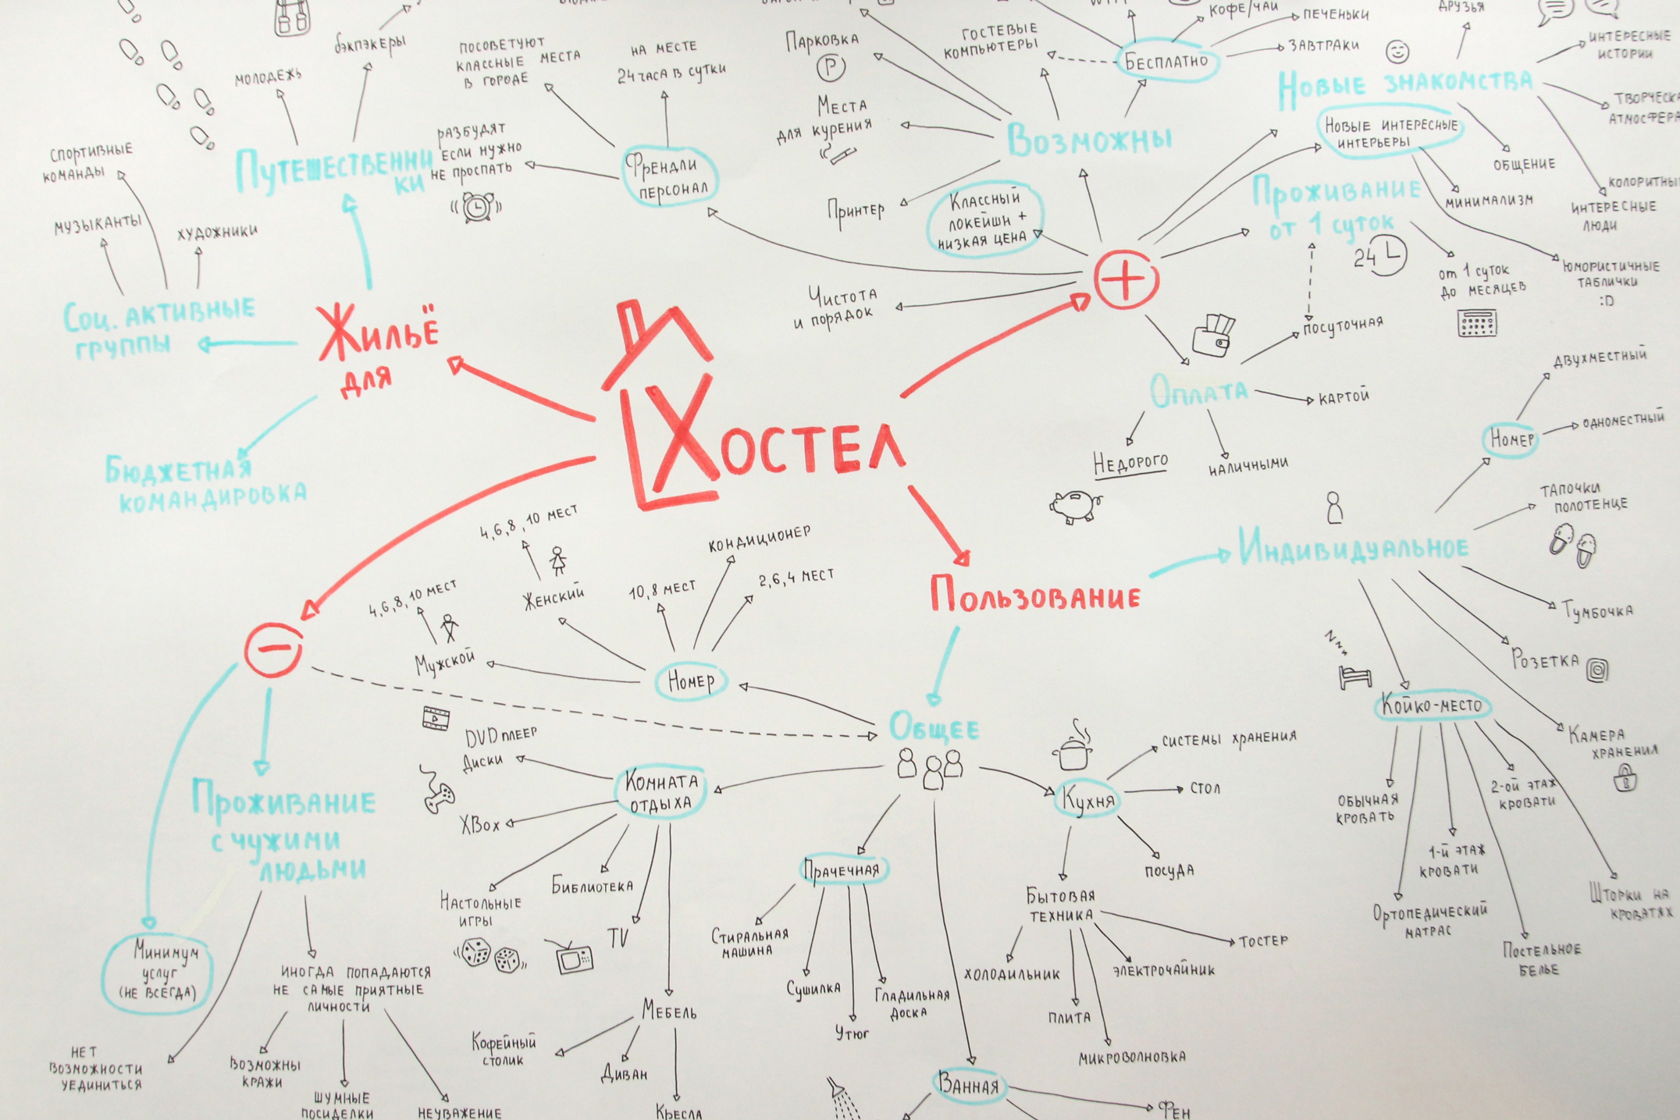 бэкпэкеры
молодежь
Путешественни
ки
спортивные
команды
музыканты
художники
Соц. активные
группы
Жильё
для
Бюджетная
командировка
посоветуют
классные места
в городе
на месте
24 часа в сутки
разбудят
если нужно
не проспать
Френдли
персонал
Парковка
P
Места
для курения
Принтер
гостевые
компьютеры
Возможны
Бесплатно
кофе/чай
печеньки
завтраки
Классный
локейшн +
низкая цена
Чистота
и порядок
+
друзья
интересные
истории
Новые знакомства
Новые интересные
интерьеры
общение
минимализм
интересные
люди
юмористичные
таблички
:D
Проживание
от 1 суток
24
от 1 суток
до месяцев
посуточная
Оплата
картой
Недорого
наличными
Хостел
Пользование
Индивидуальное
Номер
двухместный
одноместный
тапочки
полотенце
Тумбочка
Розетка
Камера
хранения
zzz
Койко-место
обычная
кровать
1-й этаж
кровати
2-ой этаж
кровати
Ортопедический
матрас
Постельное
белье
Шторки на
кроватях
Общее
Номер
4,6,8,10 мест
Женский
4,6,8,10 мест
Мужской
10,8 мест
кондиционер
2,6,4 мест
Комната
отдыха
DVD плеер
Диски
XBox
Настольные
игры
Библиотека
TV
Мебель
Кофейный
столик
Диван
Кресла
Прачечная
Стиральная
машина
Сушилка
Утюг
Гладильная
доска
Кухня
системы хранения
стол
посуда
Бытовая
техника
холодильник
плита
микроволновка
электрочайник
тостер
Ванная
Фен
−
Проживание
с чужими
людьми
Минимум
услуг
(не всегда)
нет
возможности
уединиться
иногда попадаются
не самые приятные
личности
возможны
кражи
шумные
посиделки
неуважение